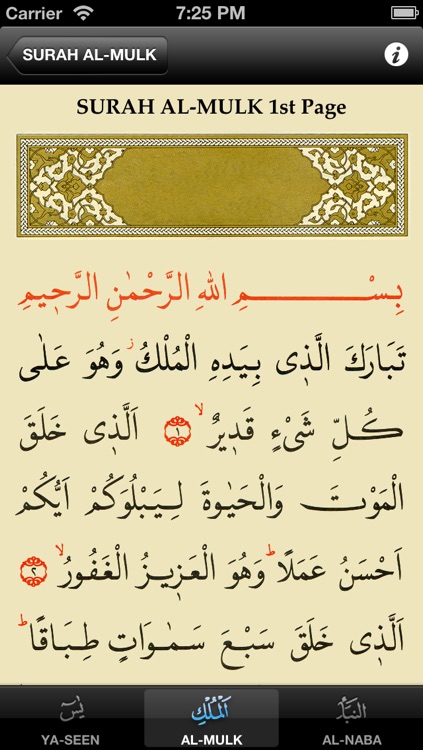 Carrier 7:25 PM
SURAH AL-MULK i
SURAH AL-MULK 1st Page
بِسْــــــــــمِ اللهِ الرَّحْمٰنِ الرَّحٖيمِ
تَبَارَكَ الَّذٖى بِيَدِهِ الْمُلْكُ ز وَهُوَ عَلٰى
كُلِّ شَىْءٍ قَدٖيرٌ ۙ ١ اَلَّذٖى خَلَقَ
الْمَوْتَ وَالْحَيٰوةَ لِيَبْلُوَكُمْ اَيُّكُمْ
اَحْسَنُ عَمَلًا ؕ وَهُوَ الْعَزٖيزُ الْغَفُورُ ۙ ٢
اَلَّذٖى خَلَقَ سَبْعَ سَمٰوَاتٍ طِبَاقًا ؕ
يٰسٓ اَلْمُلْكِ النَّبَأِ
YA-SEEN AL-MULK AL-NABA